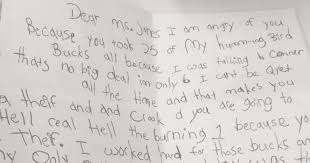 Dear Ms. Jones I am angry of you
Because you took 25 of My humming Bird
Bucks all because I was talking to Conner
thats no big deal im only 6 I cant be Qyiet
all the time and that makes you
a theif and and Crook d you are going to
Hell real Hell the burning 1 because yo
Theif. I worked hard for those bucks an
y Only